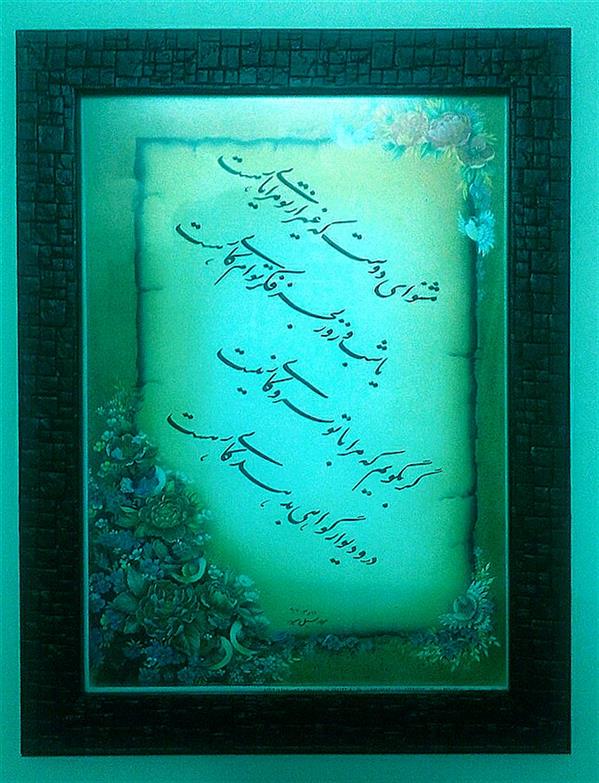 مشنو ای دوست که غیر از تو مرا یاری هست
یا شب و روز بجز فکر توام کاری هست
گر بگویم که مرا با تو سر و کاری نیست
در و دیوار گواهی بدهد کاری هست